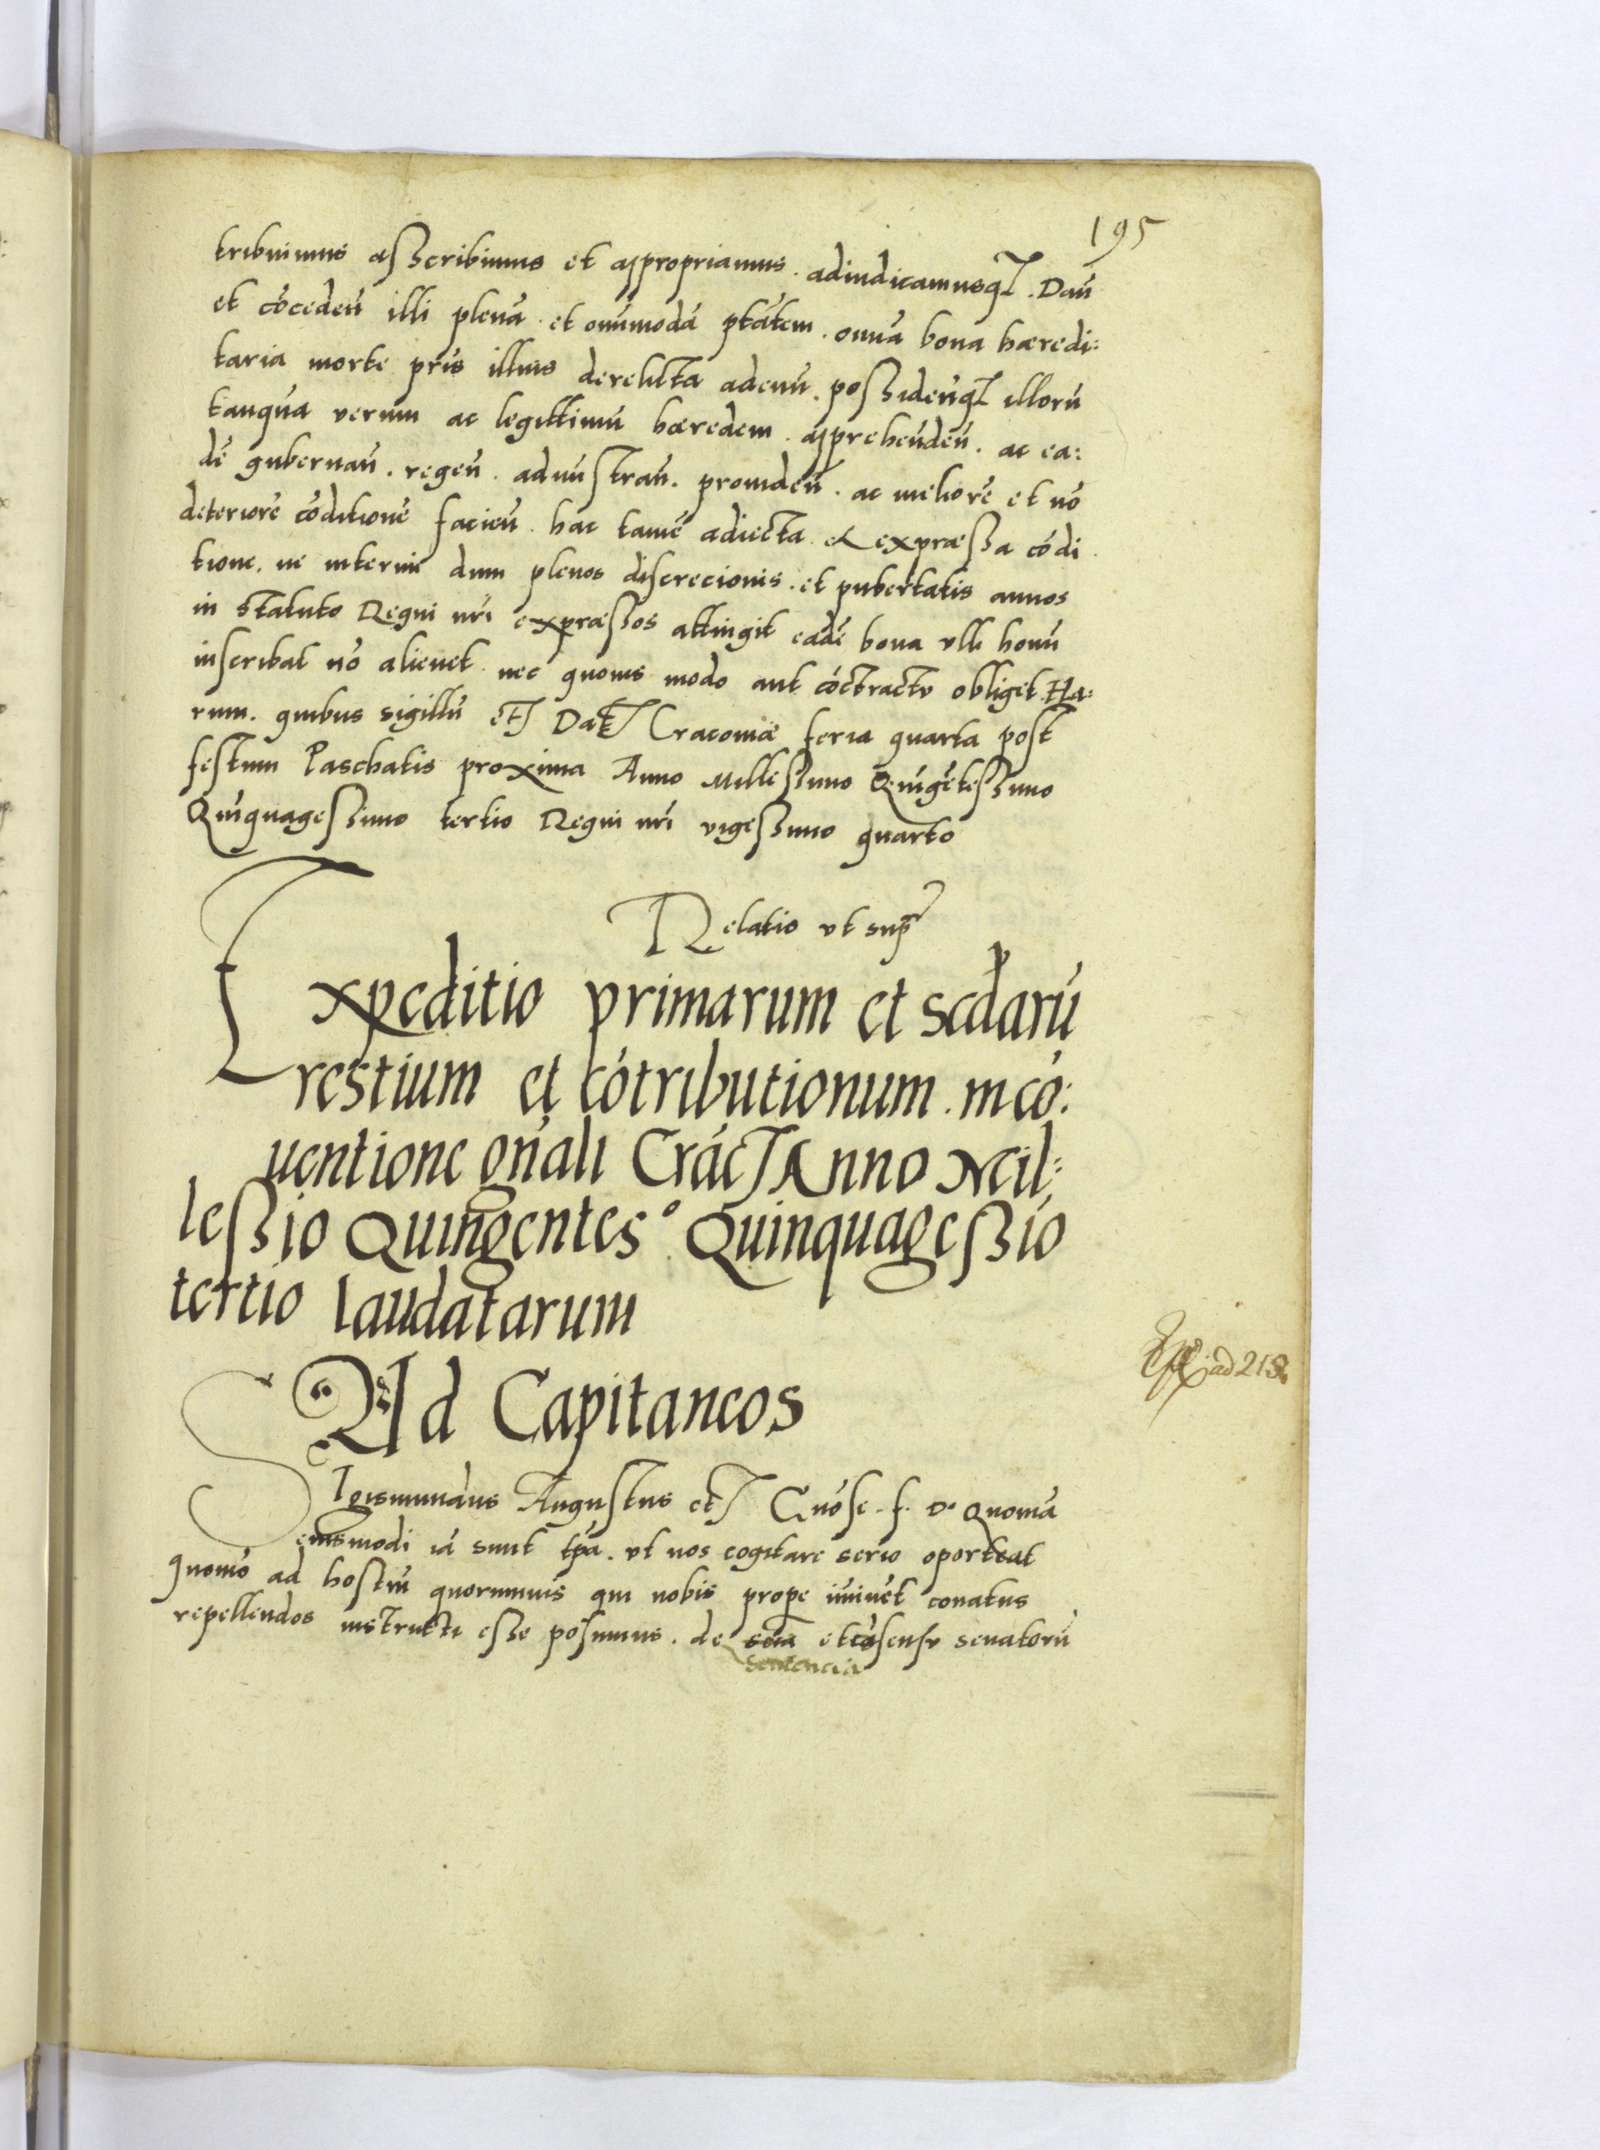 195
tribuimus asscribimus et appropriamus. adiudicamusq3. Dan̄
et cōceden̄ illi plenā. et om̄imodā ptātem. om̄ia bona hæredi:
taria morte pr̄is illius derelicta adeun̄. possiden̄q3 illorū
tanquā verum ac legittimū hæredem. apprehenden̄. ac ea:
dē gubernan̄. regen̄. admīstran̄. prouiden̄. ac meliorē et nō
deteriorē cōditionē facien̄. hac tamē adiecta et expræssa cōdi
tione. ne interim dum plenos discrecionis. et pubertatis annos
in statuto Regni nr̄i expræssos attingit eadē bona vlli homī
inscribat nō alienet. nec quouis modo aut cōctractu obliget Ha:
rum. quibus sigillū et3 Dat3 Cracouiæ feria quarta post
festum Paschatis proxima Anno Millessimo Quīgētessimo
Quīquagessimo tertio Regni nr̄i vigessimo quarto
Relatio vt supr
Expeditio primarum et scdarū
restium et cōtributionum. in cō:
uentione gn̄ali Crac3 Anno Mil:
lessio Quingentes° Quinquagessio
tertio laudatarum
ad 218
Ad Capitaneos
Sigismundus Augustus et3 Gn̄ose. f. D. Quoniā
eiusmodi iā sunt tpā. vt nos cogitare serio oporteat
quomō ad hostiū quorumuis qui nobis prope iminēt conatus
repellendos instructi esse possimus. de sn̄ia et cōsensu senatorū
sentencia